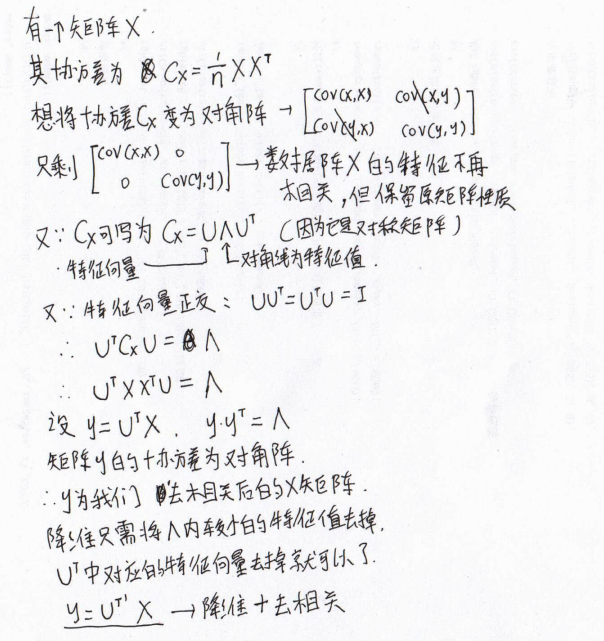 有一个矩阵X.
其协方差为 Cx = 1/n XX^T
想将协方差Cx变为对角阵 → [cov(x,x) cov(x,y)
cov(y,x) cov(y,y)]
只剩 [cov(x,x) 0
0 cov(y,y)] → 数据阵X的特征不再
相关,但保留原矩阵性质
又∵ Cx可写为 Cx = UΛU^T (因为它是对称矩阵)
特征向量 对角线为特征值.
又∵ 特征向量正交: UU^T = U^TU = I
∴ U^TCxU = Λ
∴ U^TXX^TU = Λ
设 y = U^TX. y·y^T = Λ
矩阵y的协方差为对角阵.
∴y为我们去相关后的X矩阵.
降维只需将Λ内较小的特征值去掉,
U^T中对应的特征向量去掉就可以了.
y = U^T' X → 降维+去相关